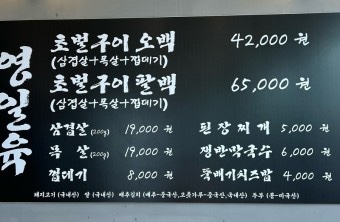 영일육
초벌구이 오백 42,000 원
(삼겹살+목살+껍데기)
초벌구이 팔백 65,000 원
(삼겹살+목살+껍데기)
삼겹살 (200g) 19,000 원
목 살 (200g) 19,000 원
껍데기 8,000 원
된장찌개 5,000 원
쟁반막국수 6,000 원
뚝배기치즈밥 4,000 원
돼지고기 (국내산) 쌀 (국내산) 배추김치 (배추-중국산,고춧가루-중국산,국내산) 두부 (콩-미국산)